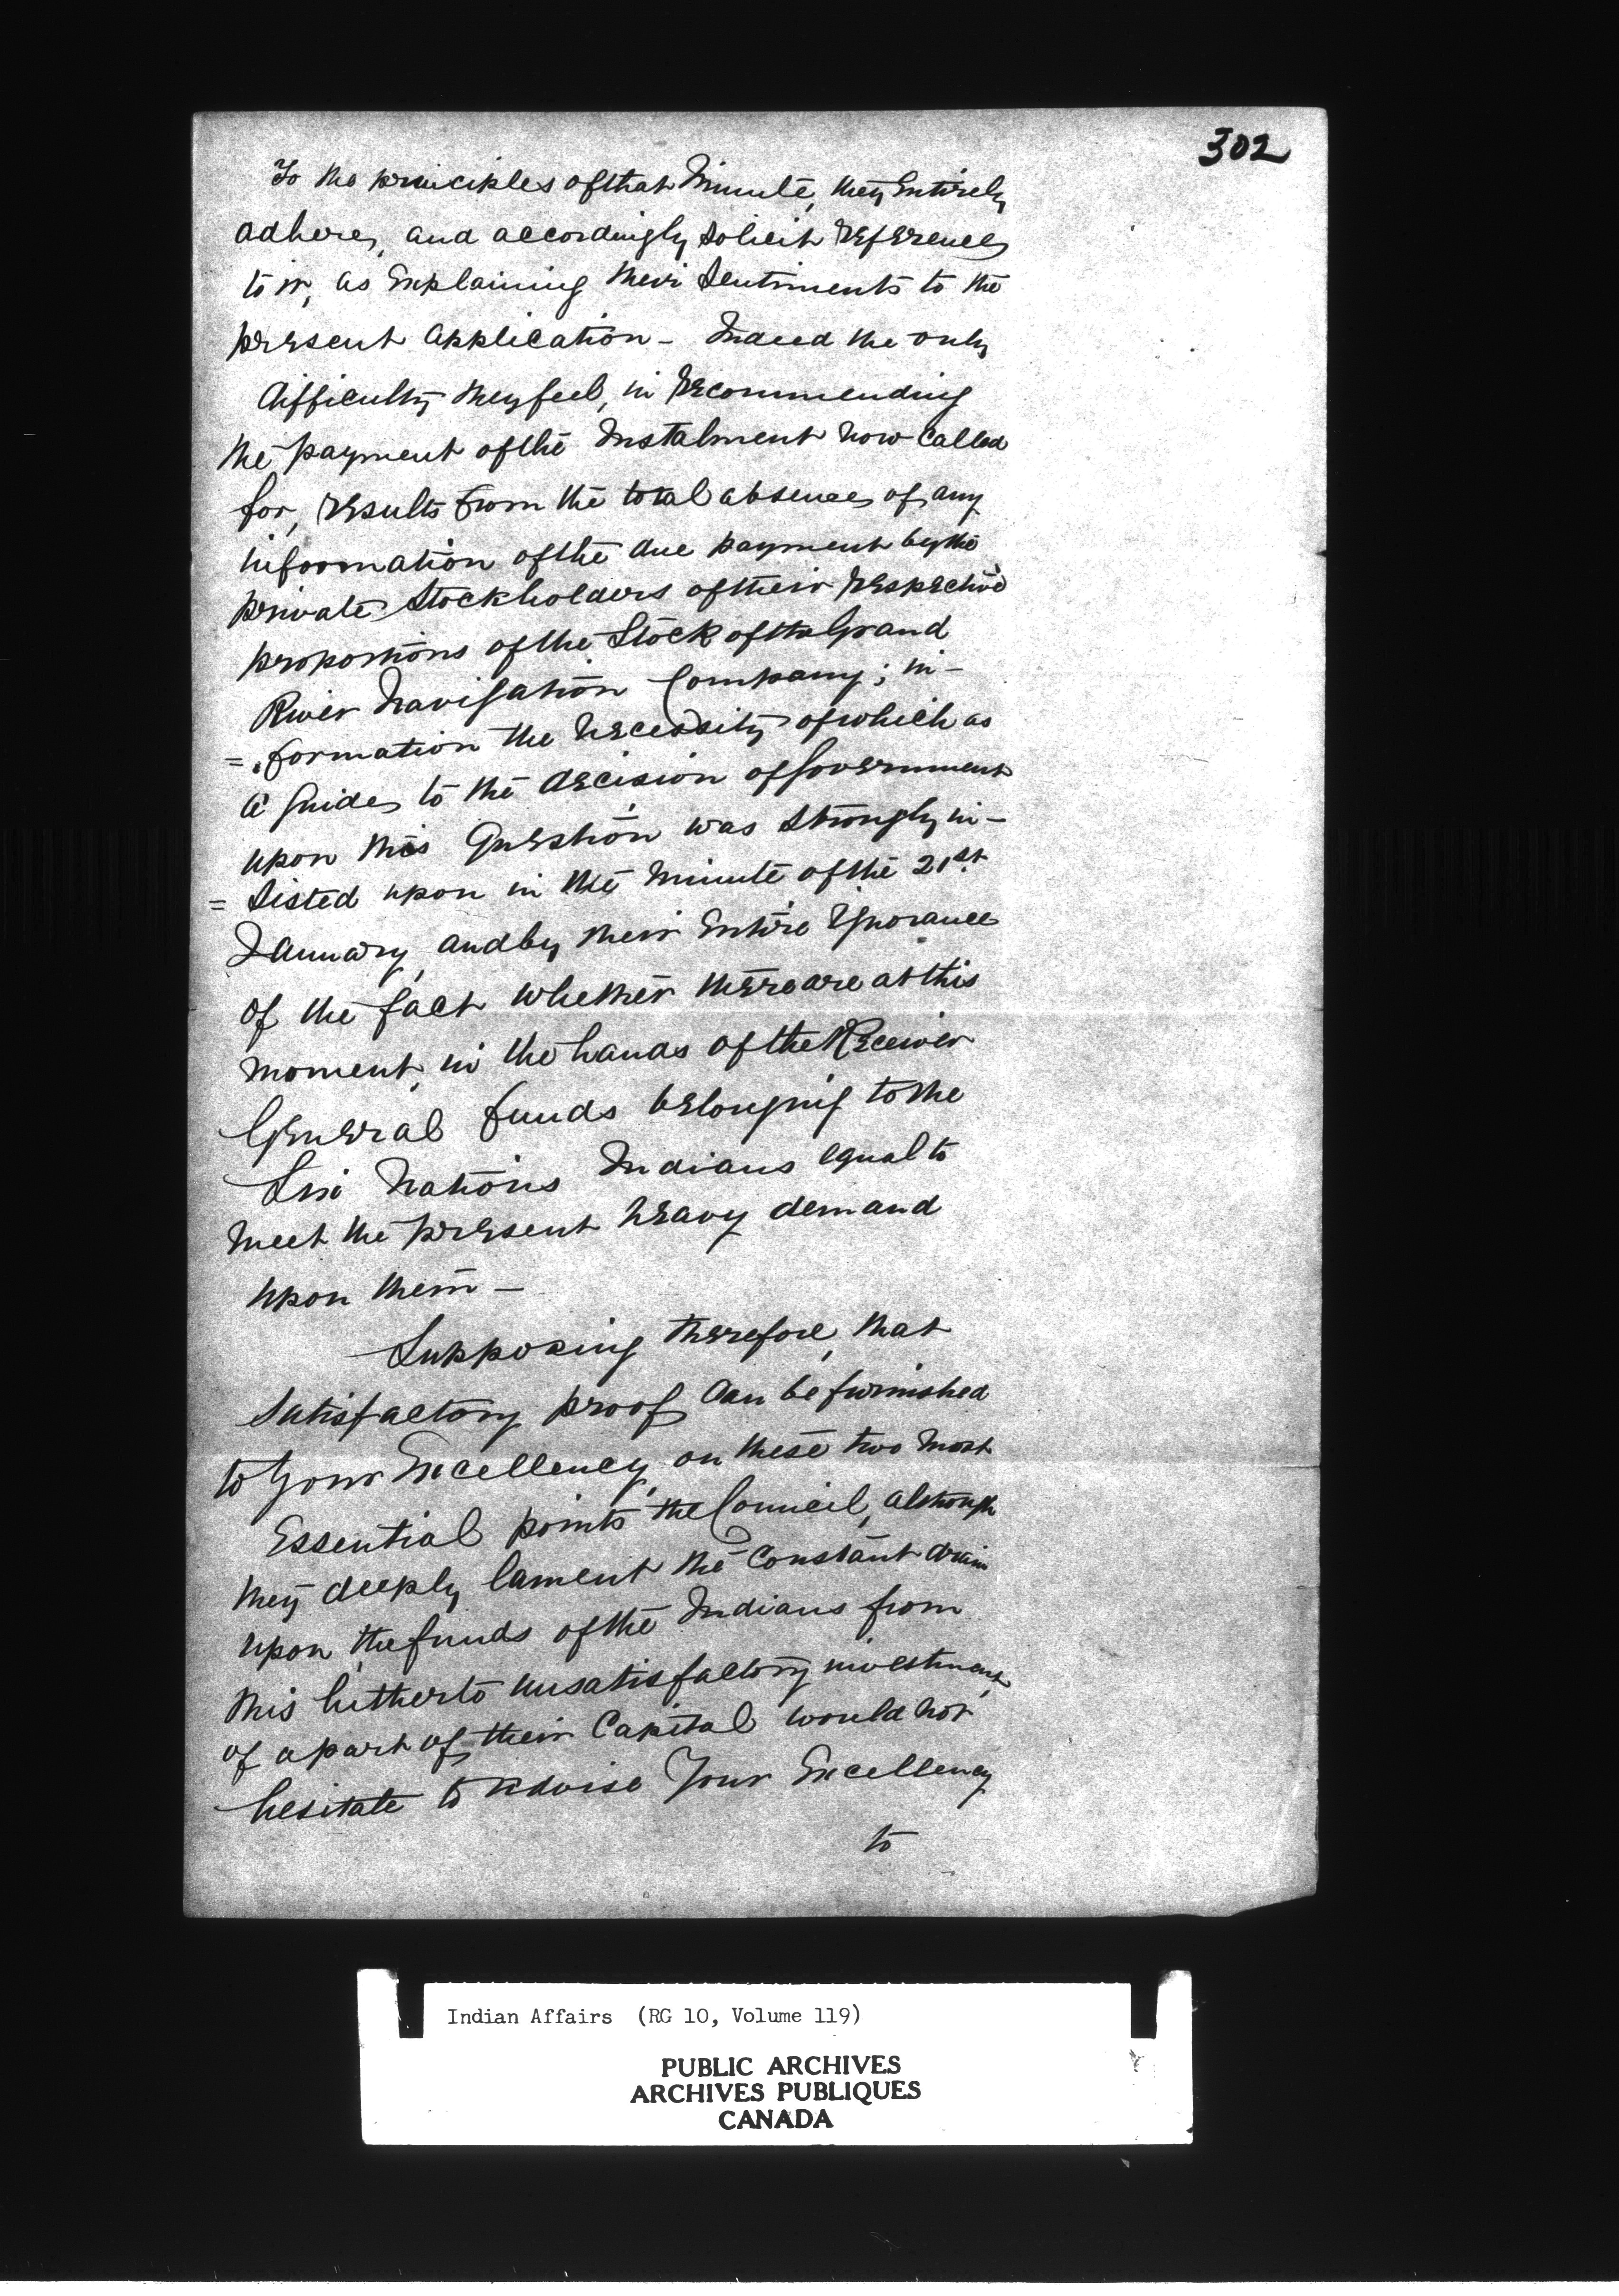 302
To the principles of that Minute, they Entirely
adhere, and accordingly solicit reference
to it, as Explaining their Sentiments to the
present application - Indeed the only
difficulty they feel, in recommending
the payment of the Instalment now called
for, results from the total absence of any
information of the due payment by the
private Stockholders of their respective
proportions of the Stock of the Grand
River Navigation Company; in-
=formation the necessity of which as
a Guide to the decision of Government
upon this Question was strongly in-
=sisted upon in the Minute of the 21st.
January, and by their Entire Ignorance
of the fact whether there are at this
moment, in the hands of the Receiver
General funds belonging to the
Six Nations Indians equal to
meet the present heavy demand
upon them -
Supposing therefore, that
satisfactory proof can be furnished
to Your Excellency, on these two most
Essential points the Council, although
they deeply lament the Constant drain
upon the funds of the Indians from
this hitherto unsatisfactory investment,
of a part of their Capital would not
hesitate to advise Your Excellency
to
Indian Affairs (RG 10, Volume 119)
PUBLIC ARCHIVES
ARCHIVES PUBLIQUES
CANADA